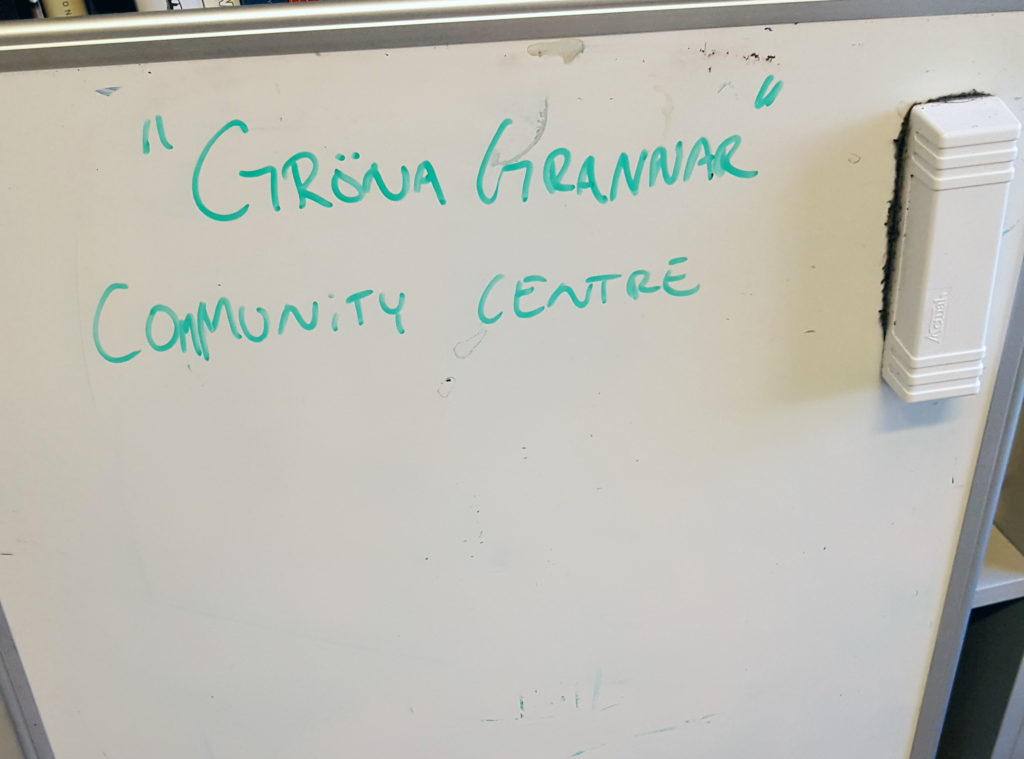 "GRÖNA GRANNAR"
COMMUNITY CENTRE
Actual.